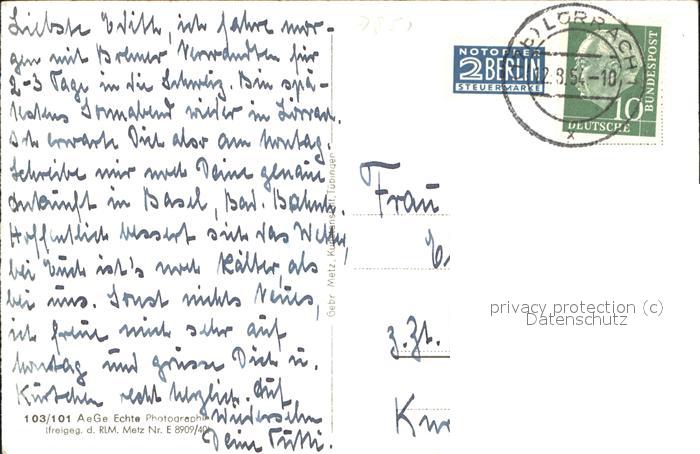 Liebste Edith, ich fahre mor-
gen mit Bremer Verwandten für
2-3 Tage in die Schweiz. Bin spä-
testens Sonnabend wieder in Lörrach.
Ich erwarte Dich also am Montag.
Schreibe mir noch Deine genaue
Ankunft in Basel, Bad. Bahnh.
Hoffentlich bessert sich das Wetter,
bei Euch ist's noch kälter, als
bei uns. Sonst nichts Neues,
ich freue mich sehr auf
Montag und grüsse Dich u.
Kürtchen recht herzlich. Auf
Wiedersehn
Deine Tutti.
103/101 AeGe Echte Photographie
(freigeg. d. RLM. Metz Nr. E 8909/40)
Gebr. Metz, Kunstanstalt, Tübingen
NOTOPFER
2 BERLIN
STEUERMARKE
LÖRRACH
2.8.54-10
10
DEUTSCHE
BUNDESPOST
Frau
z.Zt.
privacy protection (c)
Datenschutz